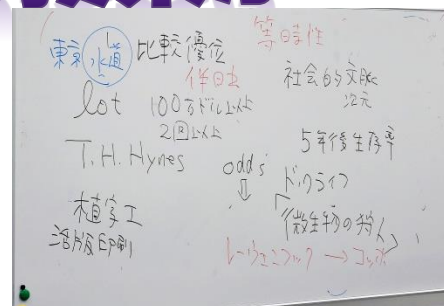 東京水道 比較優位
等時性
伴日生
社会的文脈
次元
lot 100万ドル以上
2回以上
5年後生存率
T.H. Hynes
odds
⇓
ド・クライフ
「微生物の狩人」
植字工
活版印刷
レーウェンフック → コッホ